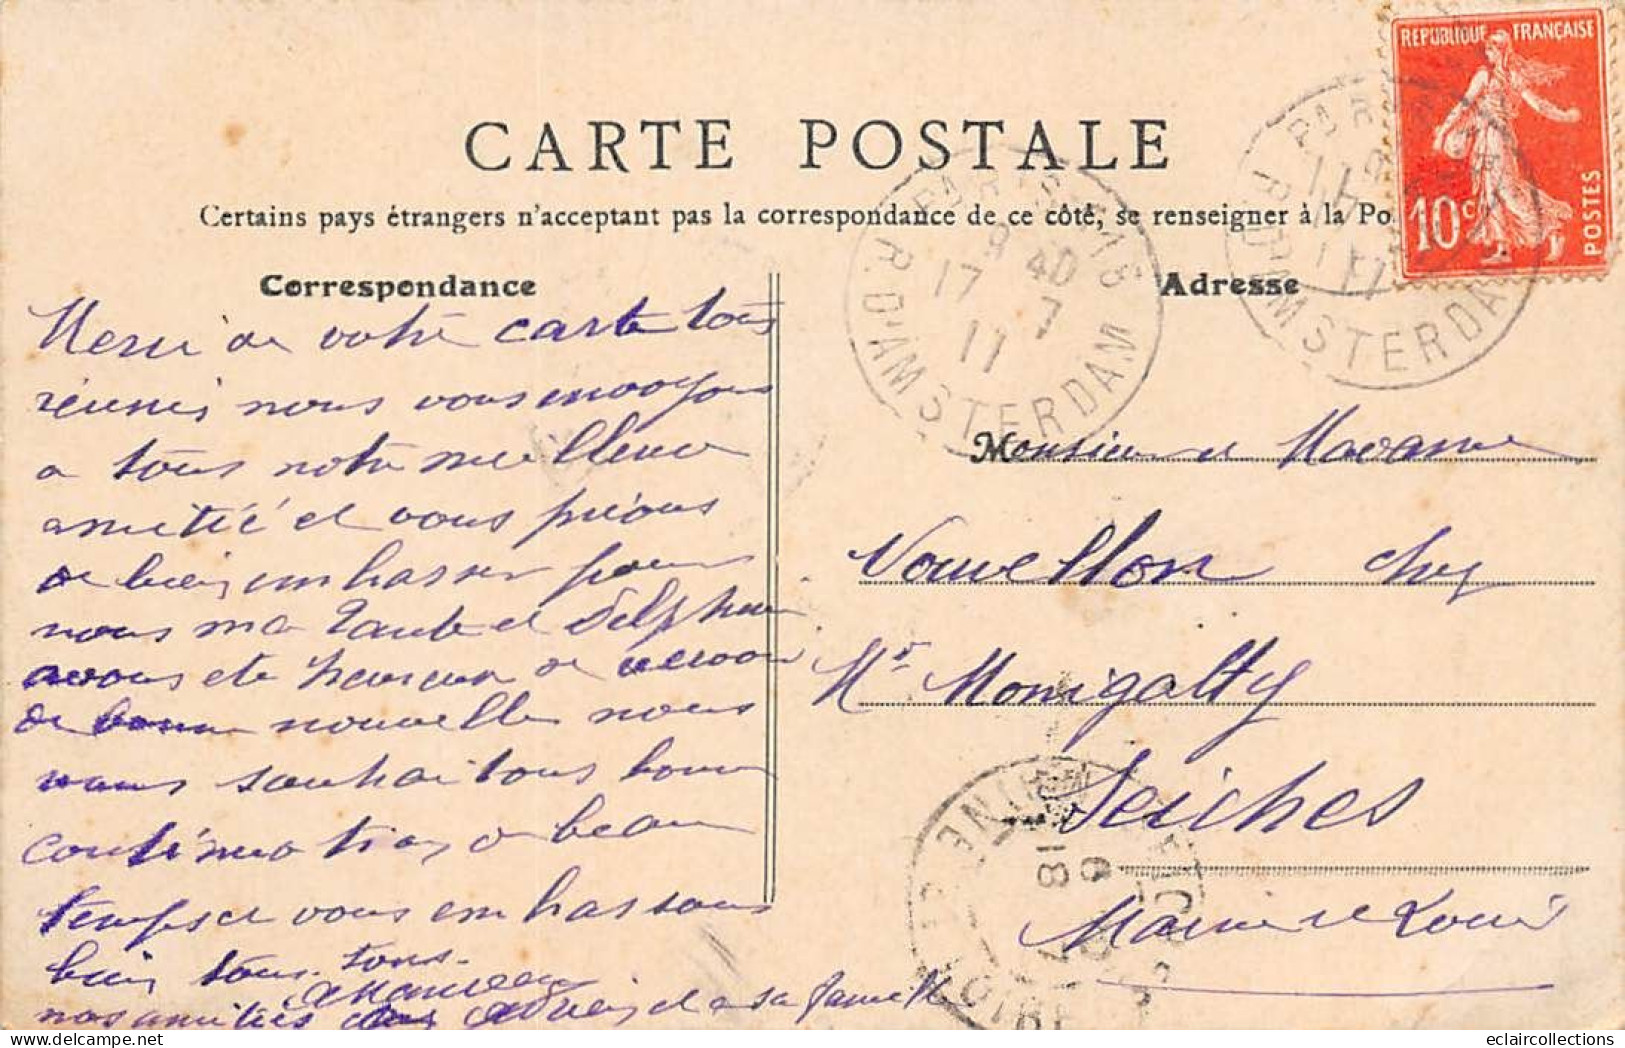 CARTE POSTALE
Certains pays étrangers n'acceptent pas la correspondance de ce côté, se renseigner à la Po
Correspondance
Adresse
REPUBLIQUE FRANÇAISE
10c
POSTES
PARIS
9 40
17 7
11
R. D'AMSTERDAM
PARIS
17
11
R. D'AMSTERDAM
Merci de votre carte tous
réunis nous vous envoyons
a tous notre meilleure
amitié et vous prions
de bien embrasser pour
nous ma Tante et Delphine
avons ete heureux de
de bonne nouvelles nous
vous souhaitons bonne
continuation de beau
temps et vous embrassons
bien tous tous
nos amitiés Adrien et a sa famille
Monsieur et Madame
Vouvellon chez
Mr Monigalty
Seiches
Maine et Loire
18
LOIRE
eclaircollections